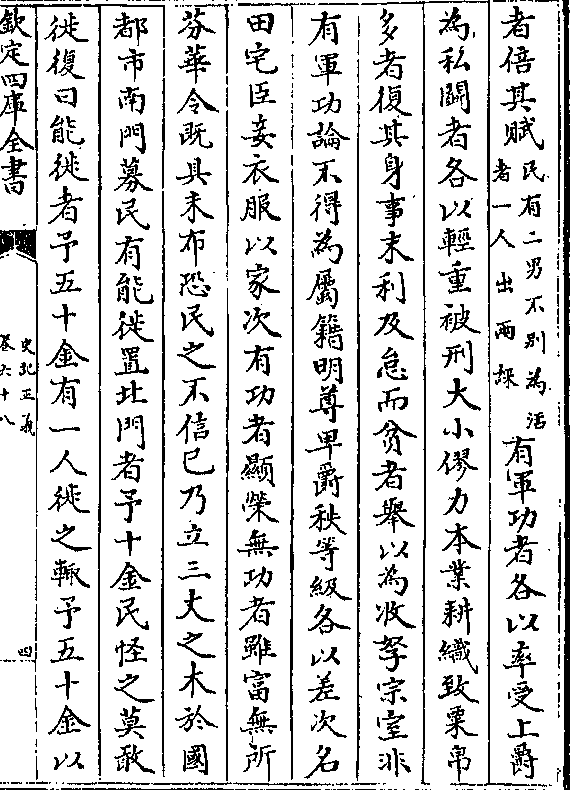 者倍其賦民有二男不别為活
者一人出兩課有軍功者各以率受上爵
為私鬬者各以輕重被刑大小僇力本業耕織致粟帛
多者復其身事末利及怠而貧者舉以為收孥宗室非
有軍功論不得為屬籍明尊卑爵秩等級各以差次名
田宅臣妾衣服以家次有功者顯榮無功者雖富無所
芬華令既具未布恐民之不信已乃立三丈之木於國
都市南門募民有能徙置北門者予十金民怪之莫敢
徙復曰能徙者予五十金有一人徙之輒予五十金以
欽定四庫全書
史記正義
卷六十八
四